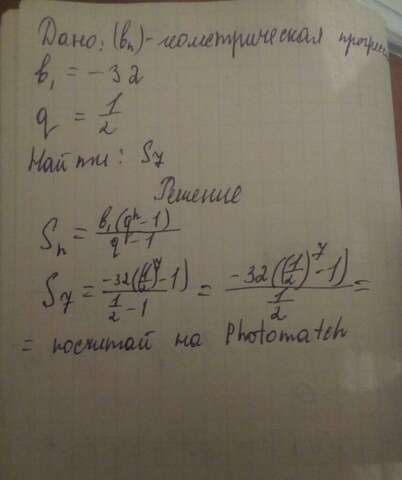 Дано: (bn)-геометрическая прогрес
b₁ = -32
q = 1/2
Найти: S₇
Решение
Sn = b₁(qⁿ-1)/q-1
S₇ = -32((1/2)⁷-1)/(1/2-1) = -32((1/2)⁷-1)/(1/2) =
= посчитай на Photomatch